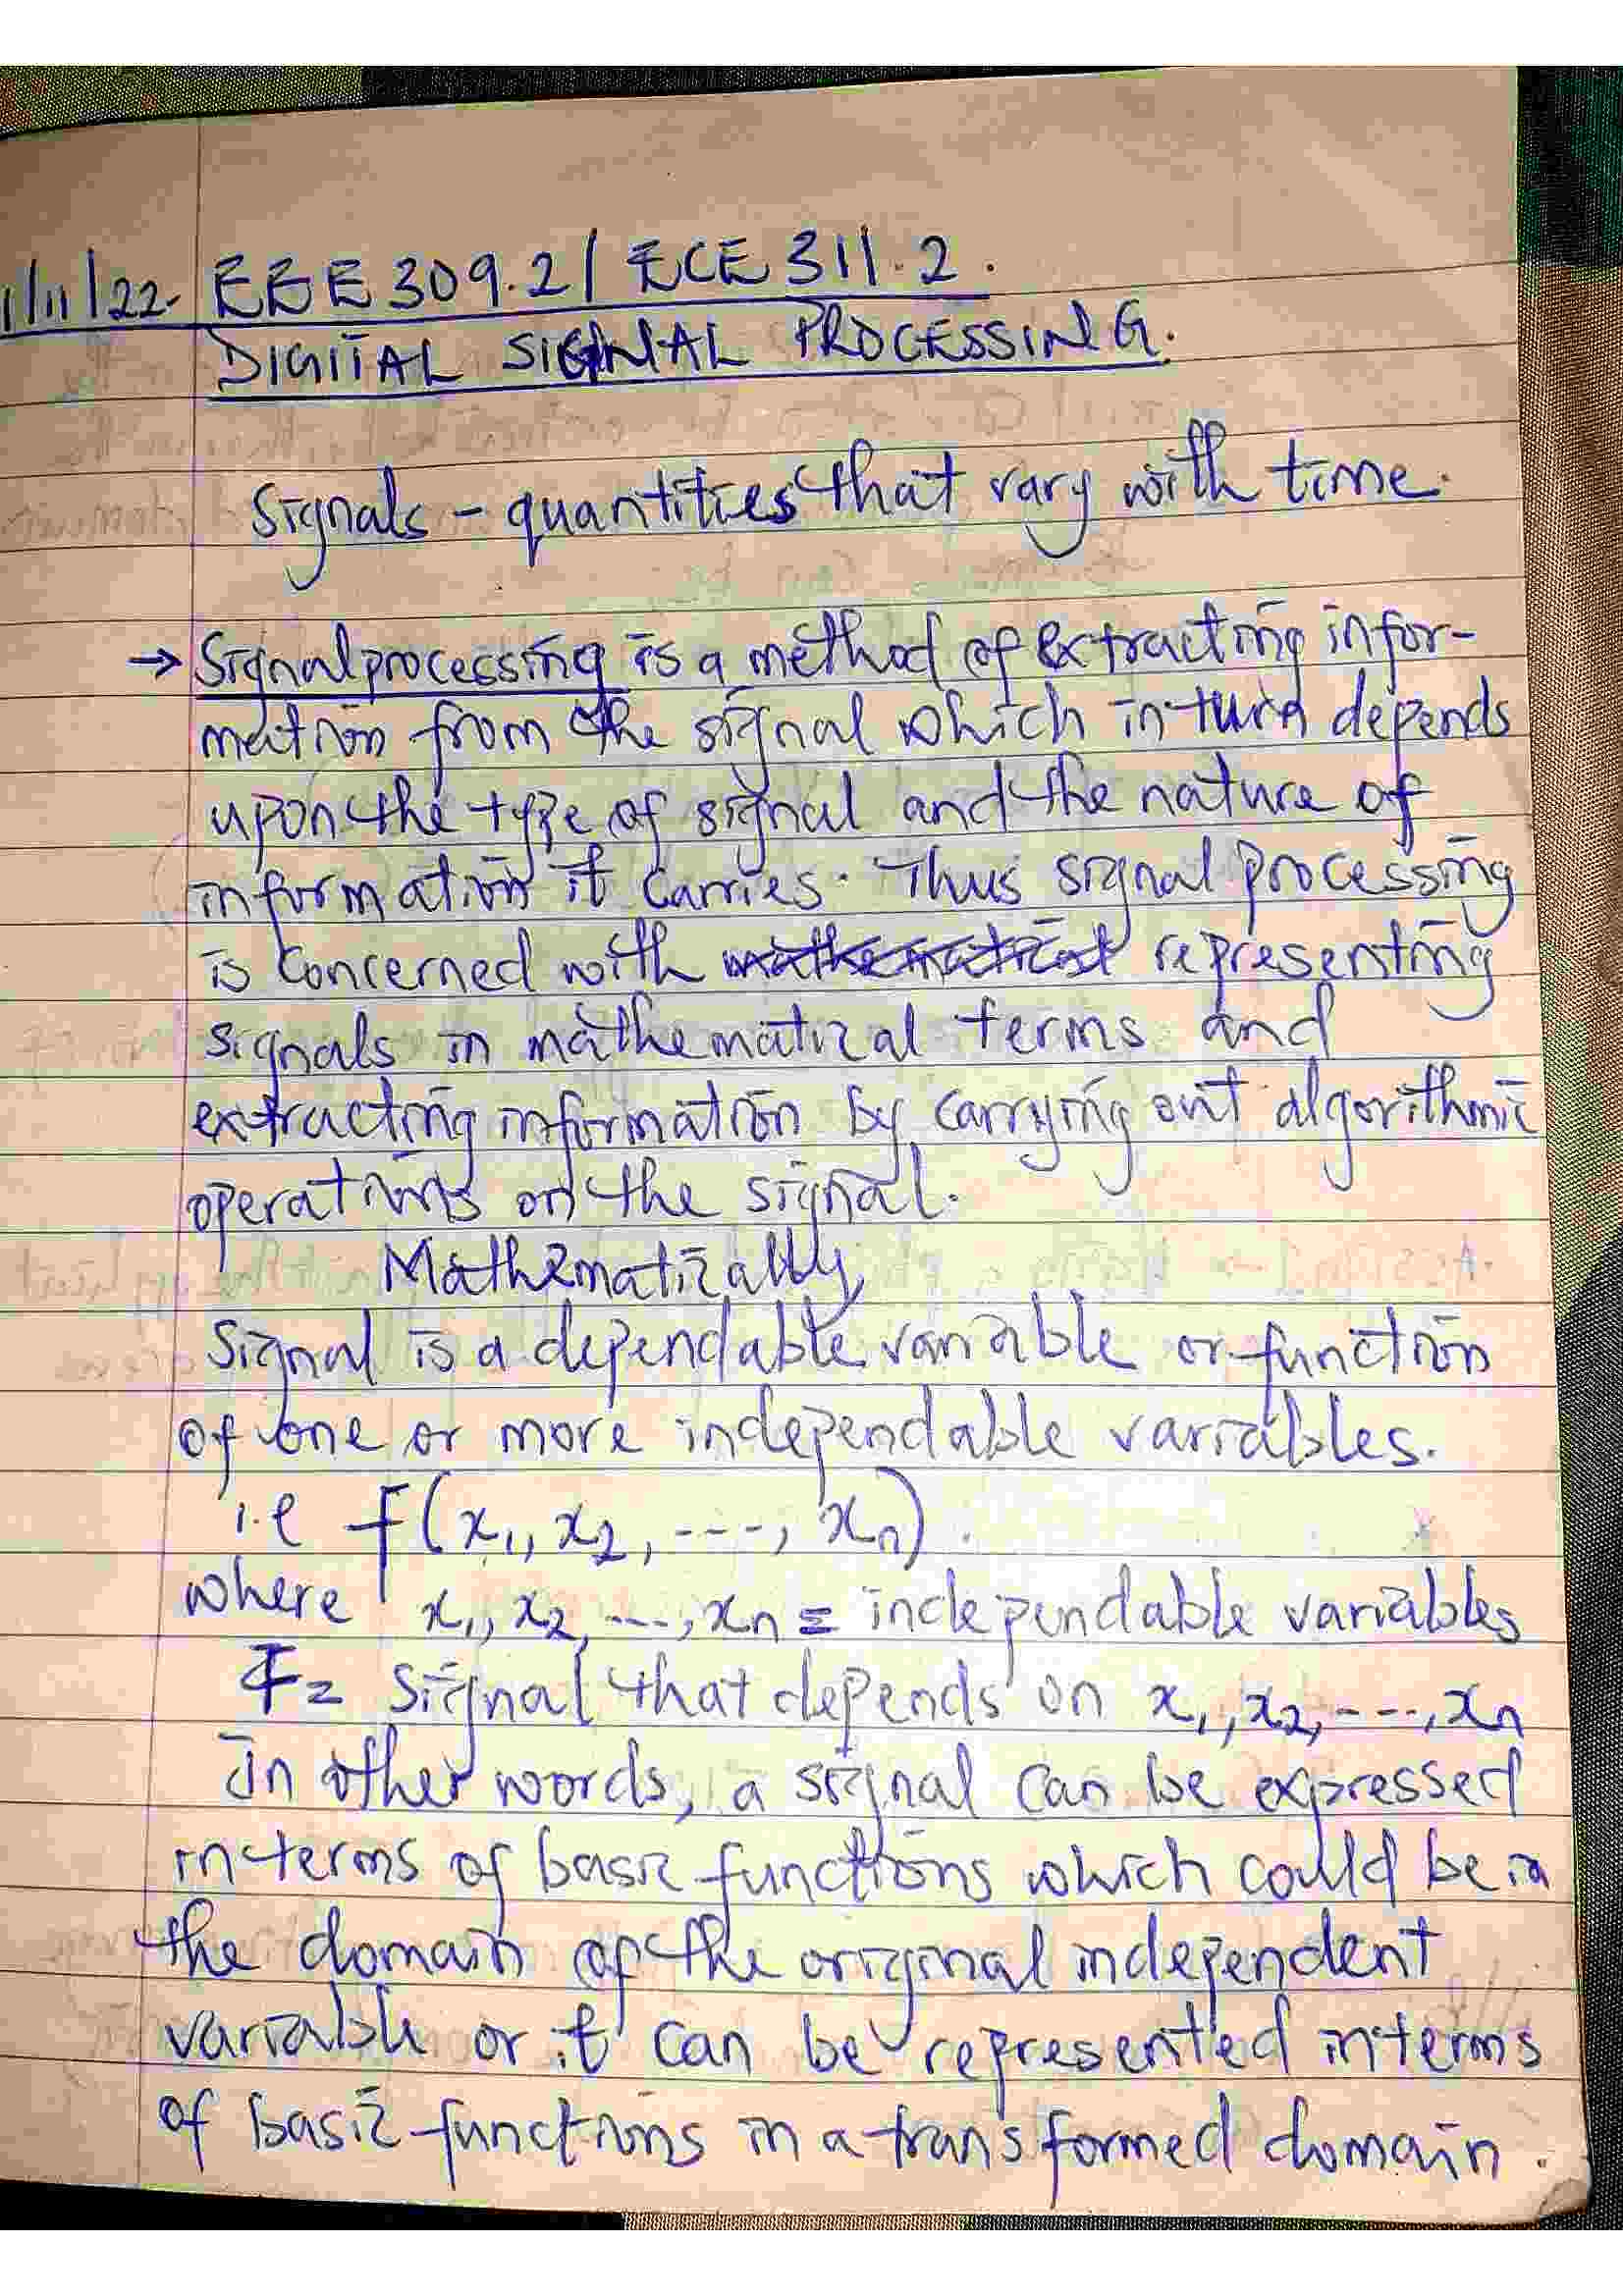 1/11/22. EEE 309.2/ ECE 311.2.
DIGITAL SIGNAL PROCESSING.
Signals - quantities that vary with time.
→ Signal processing is a method of extracting infor-
mation from the signal which in turn depends
upon the type of signal and the nature of
information it carries. Thus signal processing
is concerned with mathematical representing
signals in mathematical terms and
extracting information by carrying out algorithmic
operations on the signal.
Mathematically,
Signal is a dependable variable or function
of one or more independable variables.
i.e f(x₁, x₂, ----, xₙ).
where x₁, x₂, ---, xₙ = independable variables
F = Signal that depends on x₁, x₂, ---, xₙ
In other words, a signal can be expressed
in terms of basic functions which could be in
the domain of the original independent
variable or it can be represented in terms
of basic functions in a transformed domain.